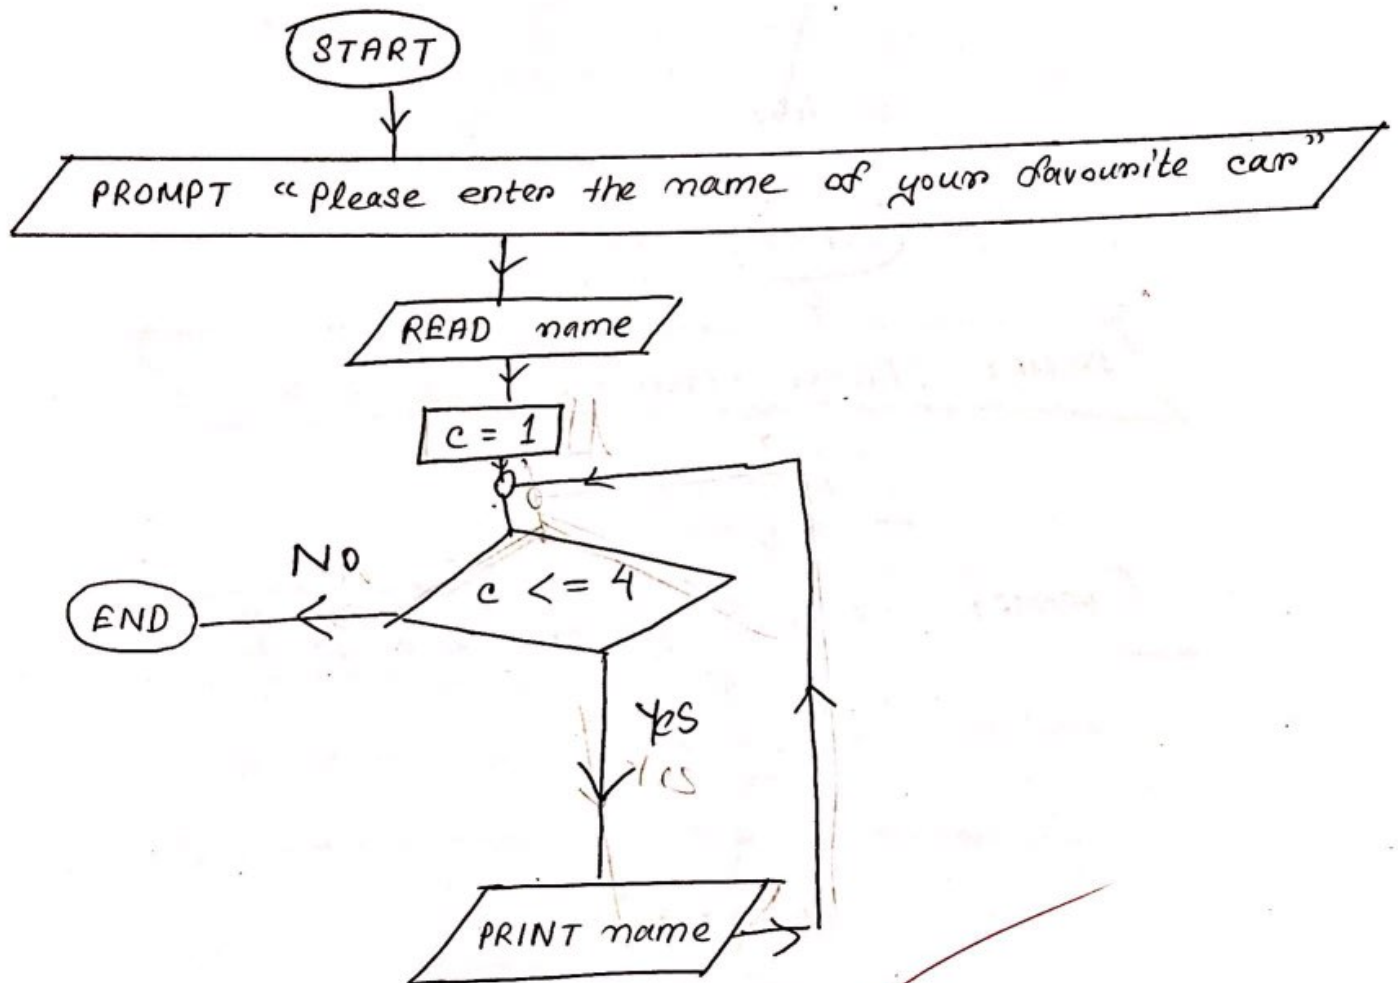 START
PROMPT "Please enter the name of your favourite car"
READ name
c = 1
c <= 4
No
END
Yes
Yes
PRINT name